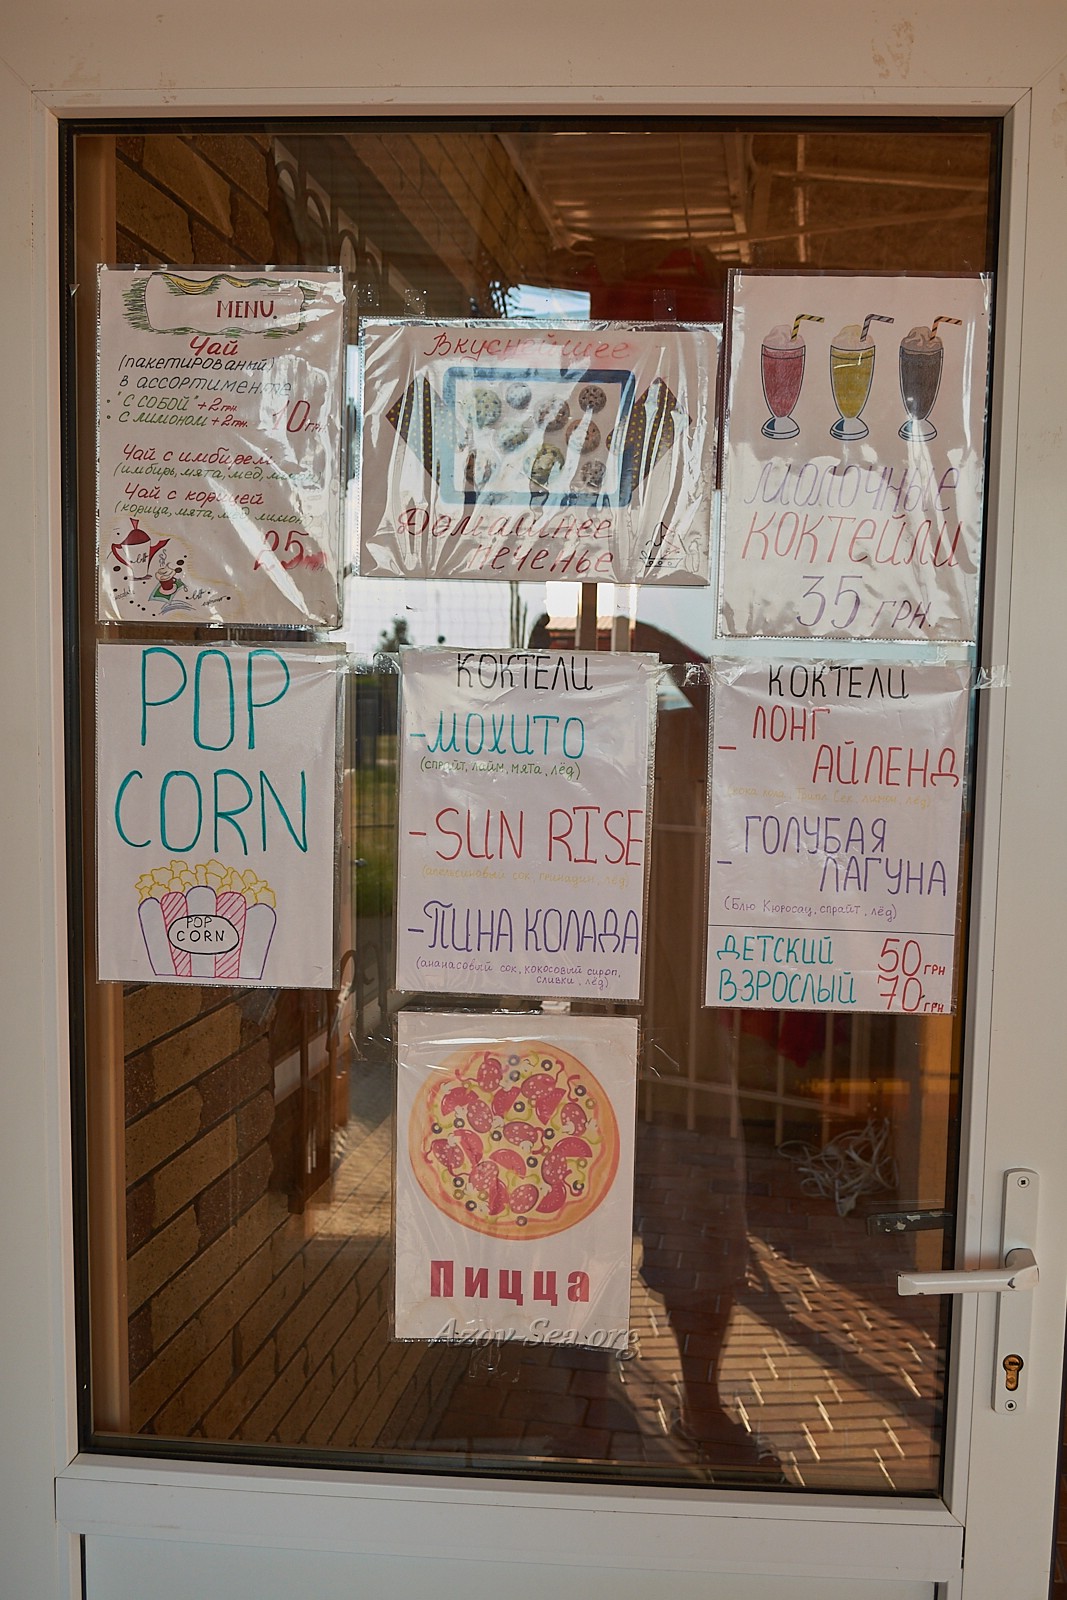 MENU.
Чай
(пакетированый)
в ассортименте
"С СОБОЙ" +2грн
С ЛИМОНОМ +2грн.
10грн
Чай с имбирем
(имбирь, мята, мед, лимон)
Чай с корицей
(корица, мята, мед лимон)
25
Вкуснейшее
Домашнее
печенье
МОЛОЧНЫЕ
КОКТЕЙЛИ
35 ГРН.
POP
CORN
POP
CORN
КОКТЕЛИ
-МОХИТО
(спрайт, лайм, мята, лёд)
-SUN RISE
(апельсиновый сок, гринадин, лёд)
-ПИНА КОЛАДА
(ананасовый сок, кокосовый сироп,
сливки, лёд)
КОКТЕЛИ
- ЛОНГ
АЙЛЕНД
сок, лимон, лёд)
- ГОЛУБАЯ
ЛАГУНА
(Блю Кюросао, спрайт, лёд)
ДЕТСКИЙ 50 ГРН
ВЗРОСЛЫЙ 70 ГРН
Пицца
Azov-Sea.org